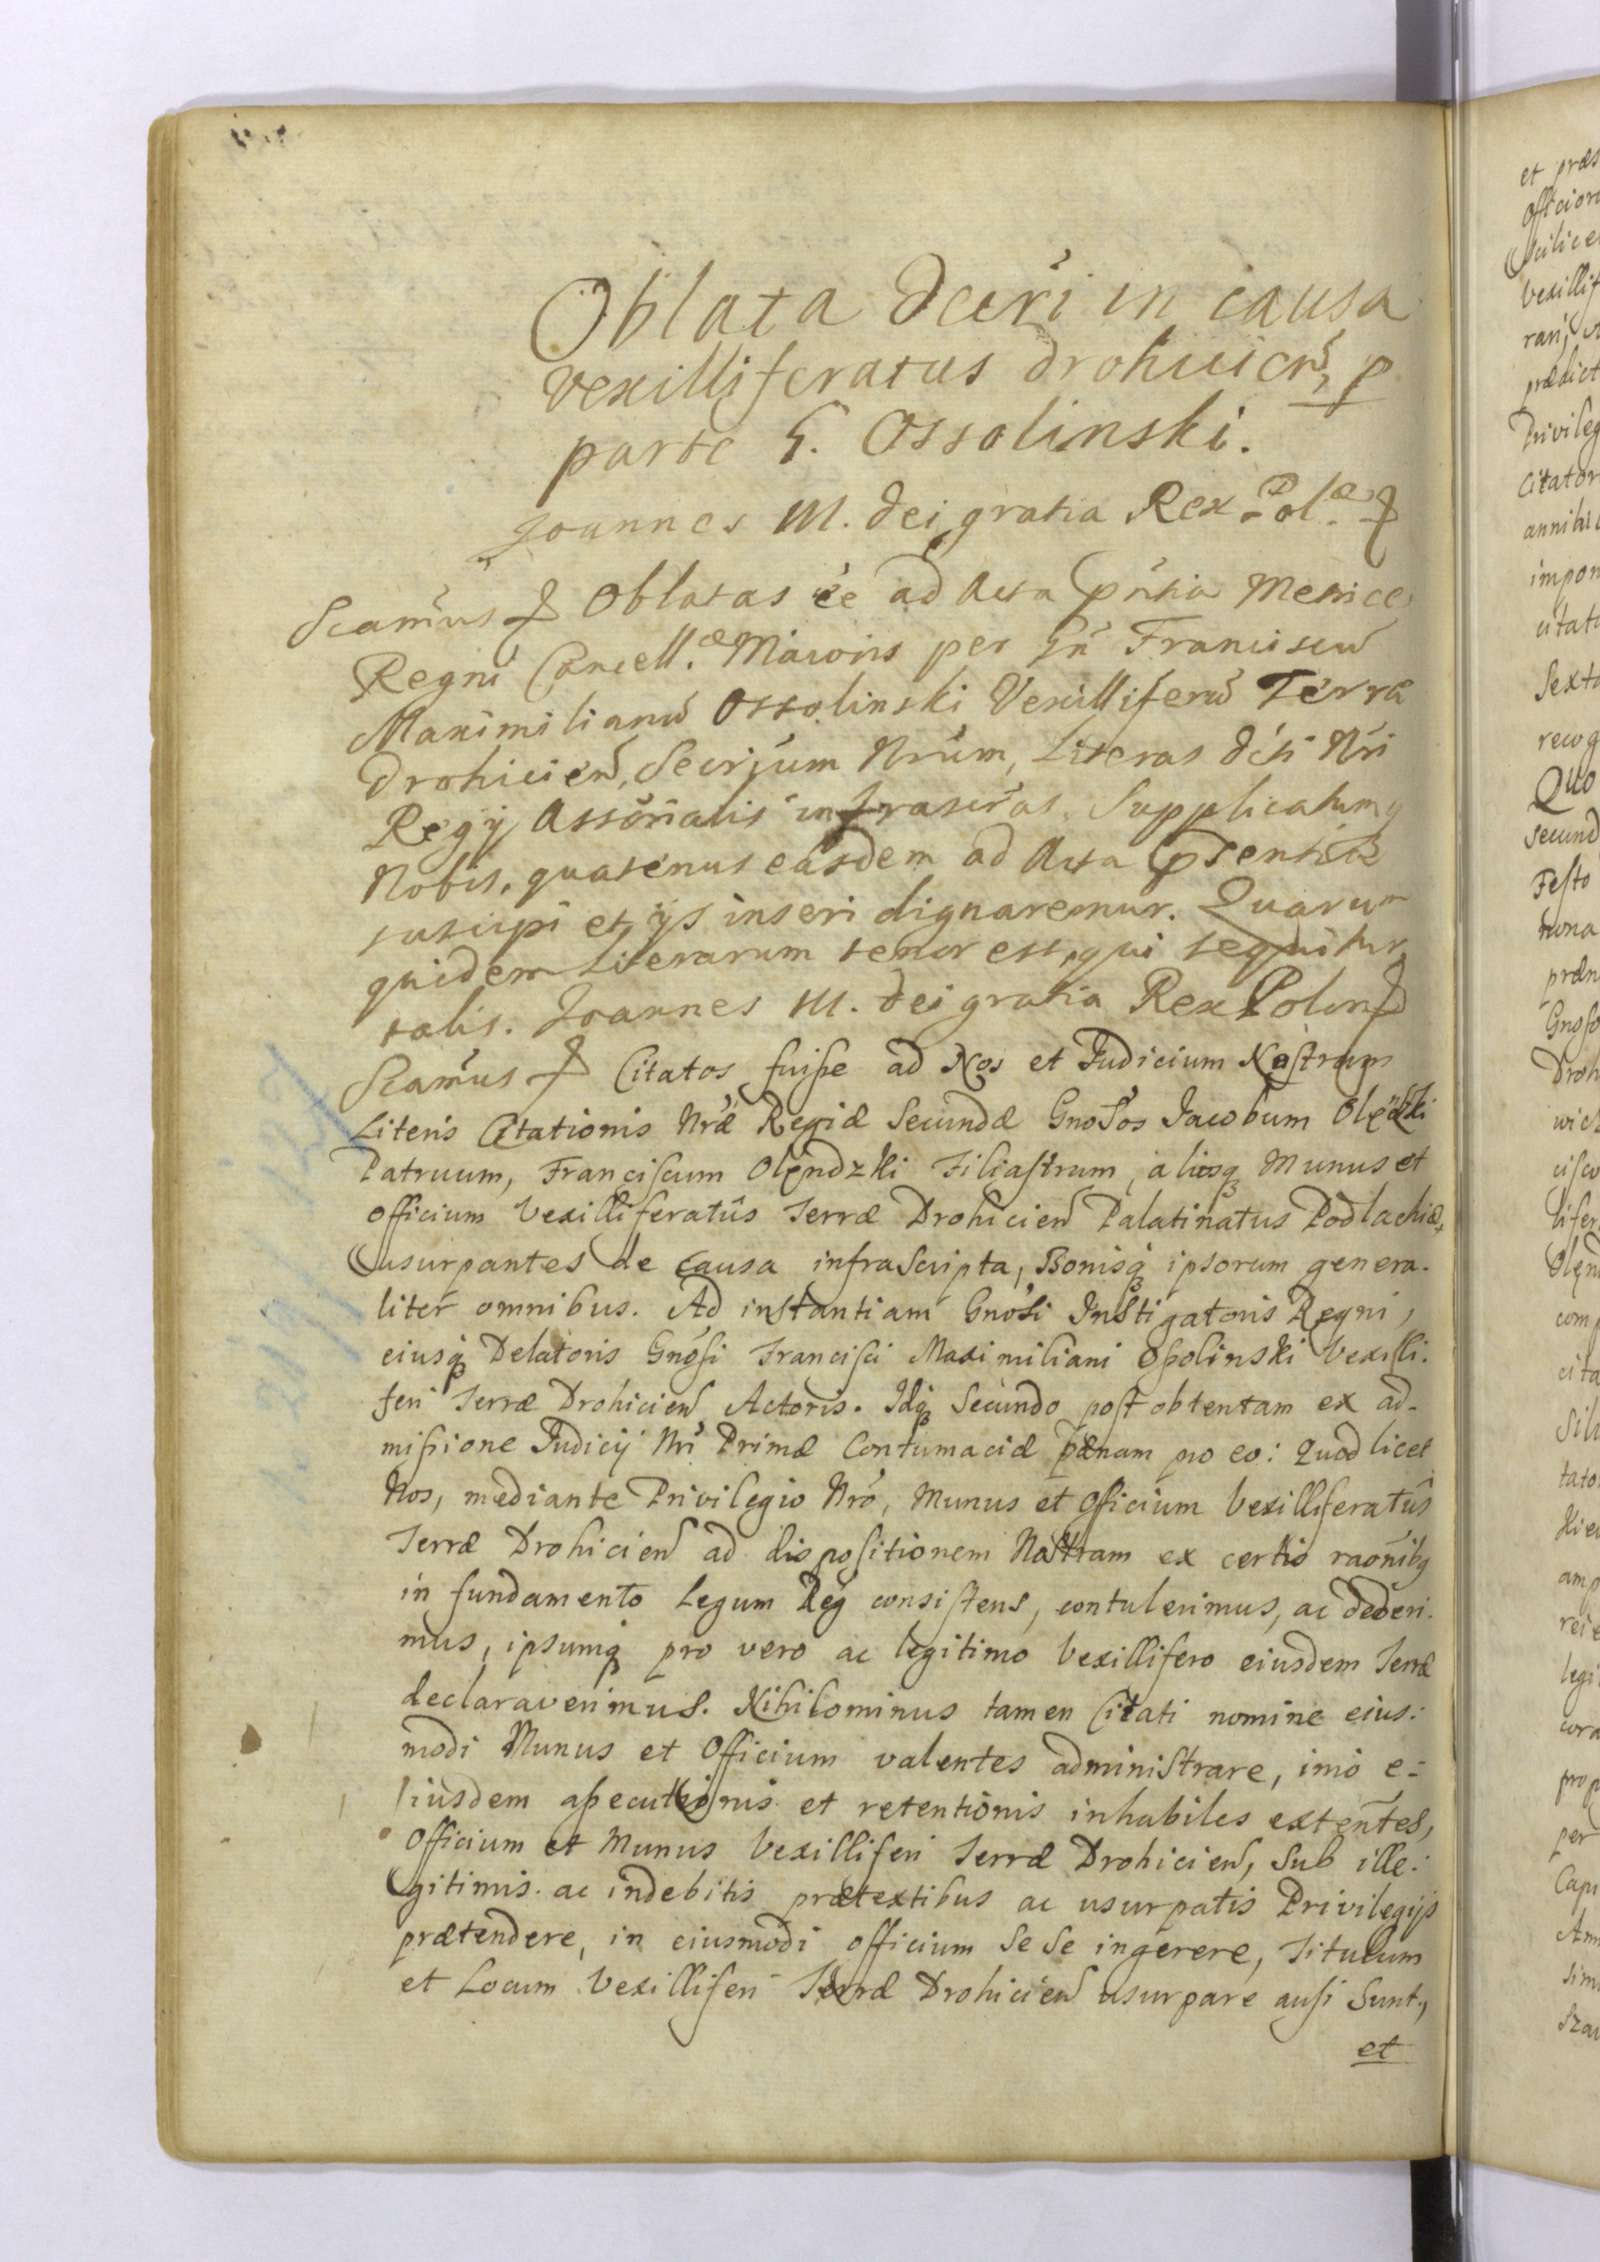 Oblata Dcŕi in causa
vexilliferatus Drohicień, p
parte G. Ossolinski.
Joannes III. Dei gratia Rex Polæ
Scamús Oblatas ée ad Acta pńtia Metrices
Regni Cancell.æ Maioris per Gń Franciscu
Maximilianu Ossolinski Vexilliferu Terræ
Drohicień, Secrium Nrúm, Literas Dcŕi Nŕi
Regij Assoŕialis infrascŕas. Supplicatumq
Nobis, quatenus easdem ad Acta pŕsentia
suscipi et ijs inseri dignaremur. Quarum
quidem Literarum tenor est, qui sequitur
talis. Joannes III. Dei gratia Rex Polon
Scamús Citatos fuiße ad Nos et Judicium Nostrum
Literis Citationis Nræ Regiæ Secundæ Gnosós Jacobum Olędzki
Patruum, Franciscum Olędzki Filiastrum, aliosq Munus et
Officium Vexilliferatûs Terræ Drohicień Palatinatus Podlachiæ,
usurpantes de causa infrascripta, Bonisq ipsorum genera-
liter omnibus. Ad instantiam Gnosi Instigatoris Regni,
eiusq Delatoris Gnosi Francisci Maximiliani Oßolinski Vexilli-
feri Terræ Drohicień Actoris. Idq Secundo post obtentam ex ad-
mißione Judicij Nri Primæ Contumaciæ pænam pro eo: Quod licet
Nos, mediante Privilegio Nro, Munus et Officium Vexilliferatûs
Terræ Drohicień ad dispositionem Nostram ex certis raonibq
in fundamento Legum Reg consistens, contulerimus, ac dederi-
mus, ipsumq pro vero ac legitimo Vexillifero eiusdem Terræ
declaraverimus. Nihilominus tamen Citati nomine eius-
modi Munus et Officium valentes administrare, imò e-
iusdem aßecutionis et retentionis inhabiles exteńtes,
Officium et Munus Vexilliferi Terræ Drohicień, Sub ille-
gitimis ac indebitis prætextibus ac usurpatis Privilegijs
prætendere, in eiusmodi officium Se Se ingerere, Titulum
et Locum Vexilliferi Terræ Drohicień usurpare ausi Sunt,
et